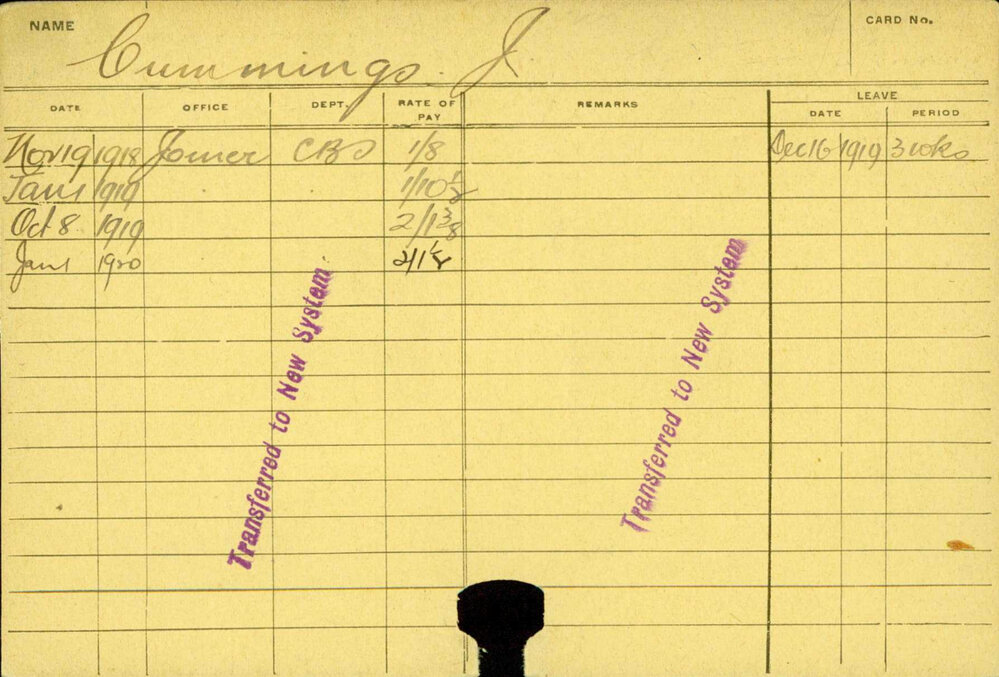 NAME Cummings. J. CARD No.
DATE OFFICE DEPT. RATE OF PAY REMARKS LEAVE
DATE PERIOD
Nov 19 1918 Joiner CBD 1/8 Dec 16 1919 3 wks
Jan 1 1919 1/10 1/2
Oct 8 1919 2/1 3/8
Jan 1 1920 2/1 1/2
Transferred to New System
Transferred to New System